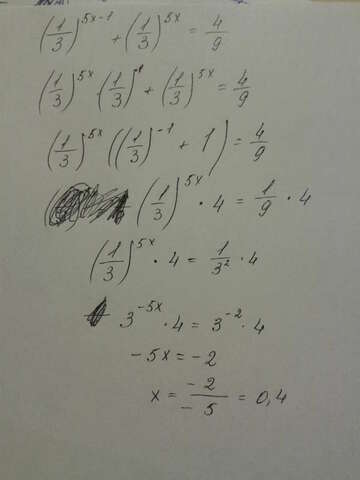 (1/3)^(5x-1) + (1/3)^(5x) = 4/9
(1/3)^(5x) · (1/3)^(-1) + (1/3)^(5x) = 4/9
(1/3)^(5x) ((1/3)^(-1) + 1) = 4/9
(1/3)^(5x) · 4 = 1/9 · 4
(1/3)^(5x) · 4 = 1/3^2 · 4
3^(-5x) · 4 = 3^(-2) · 4
-5x = -2
x = -2/-5 = 0,4